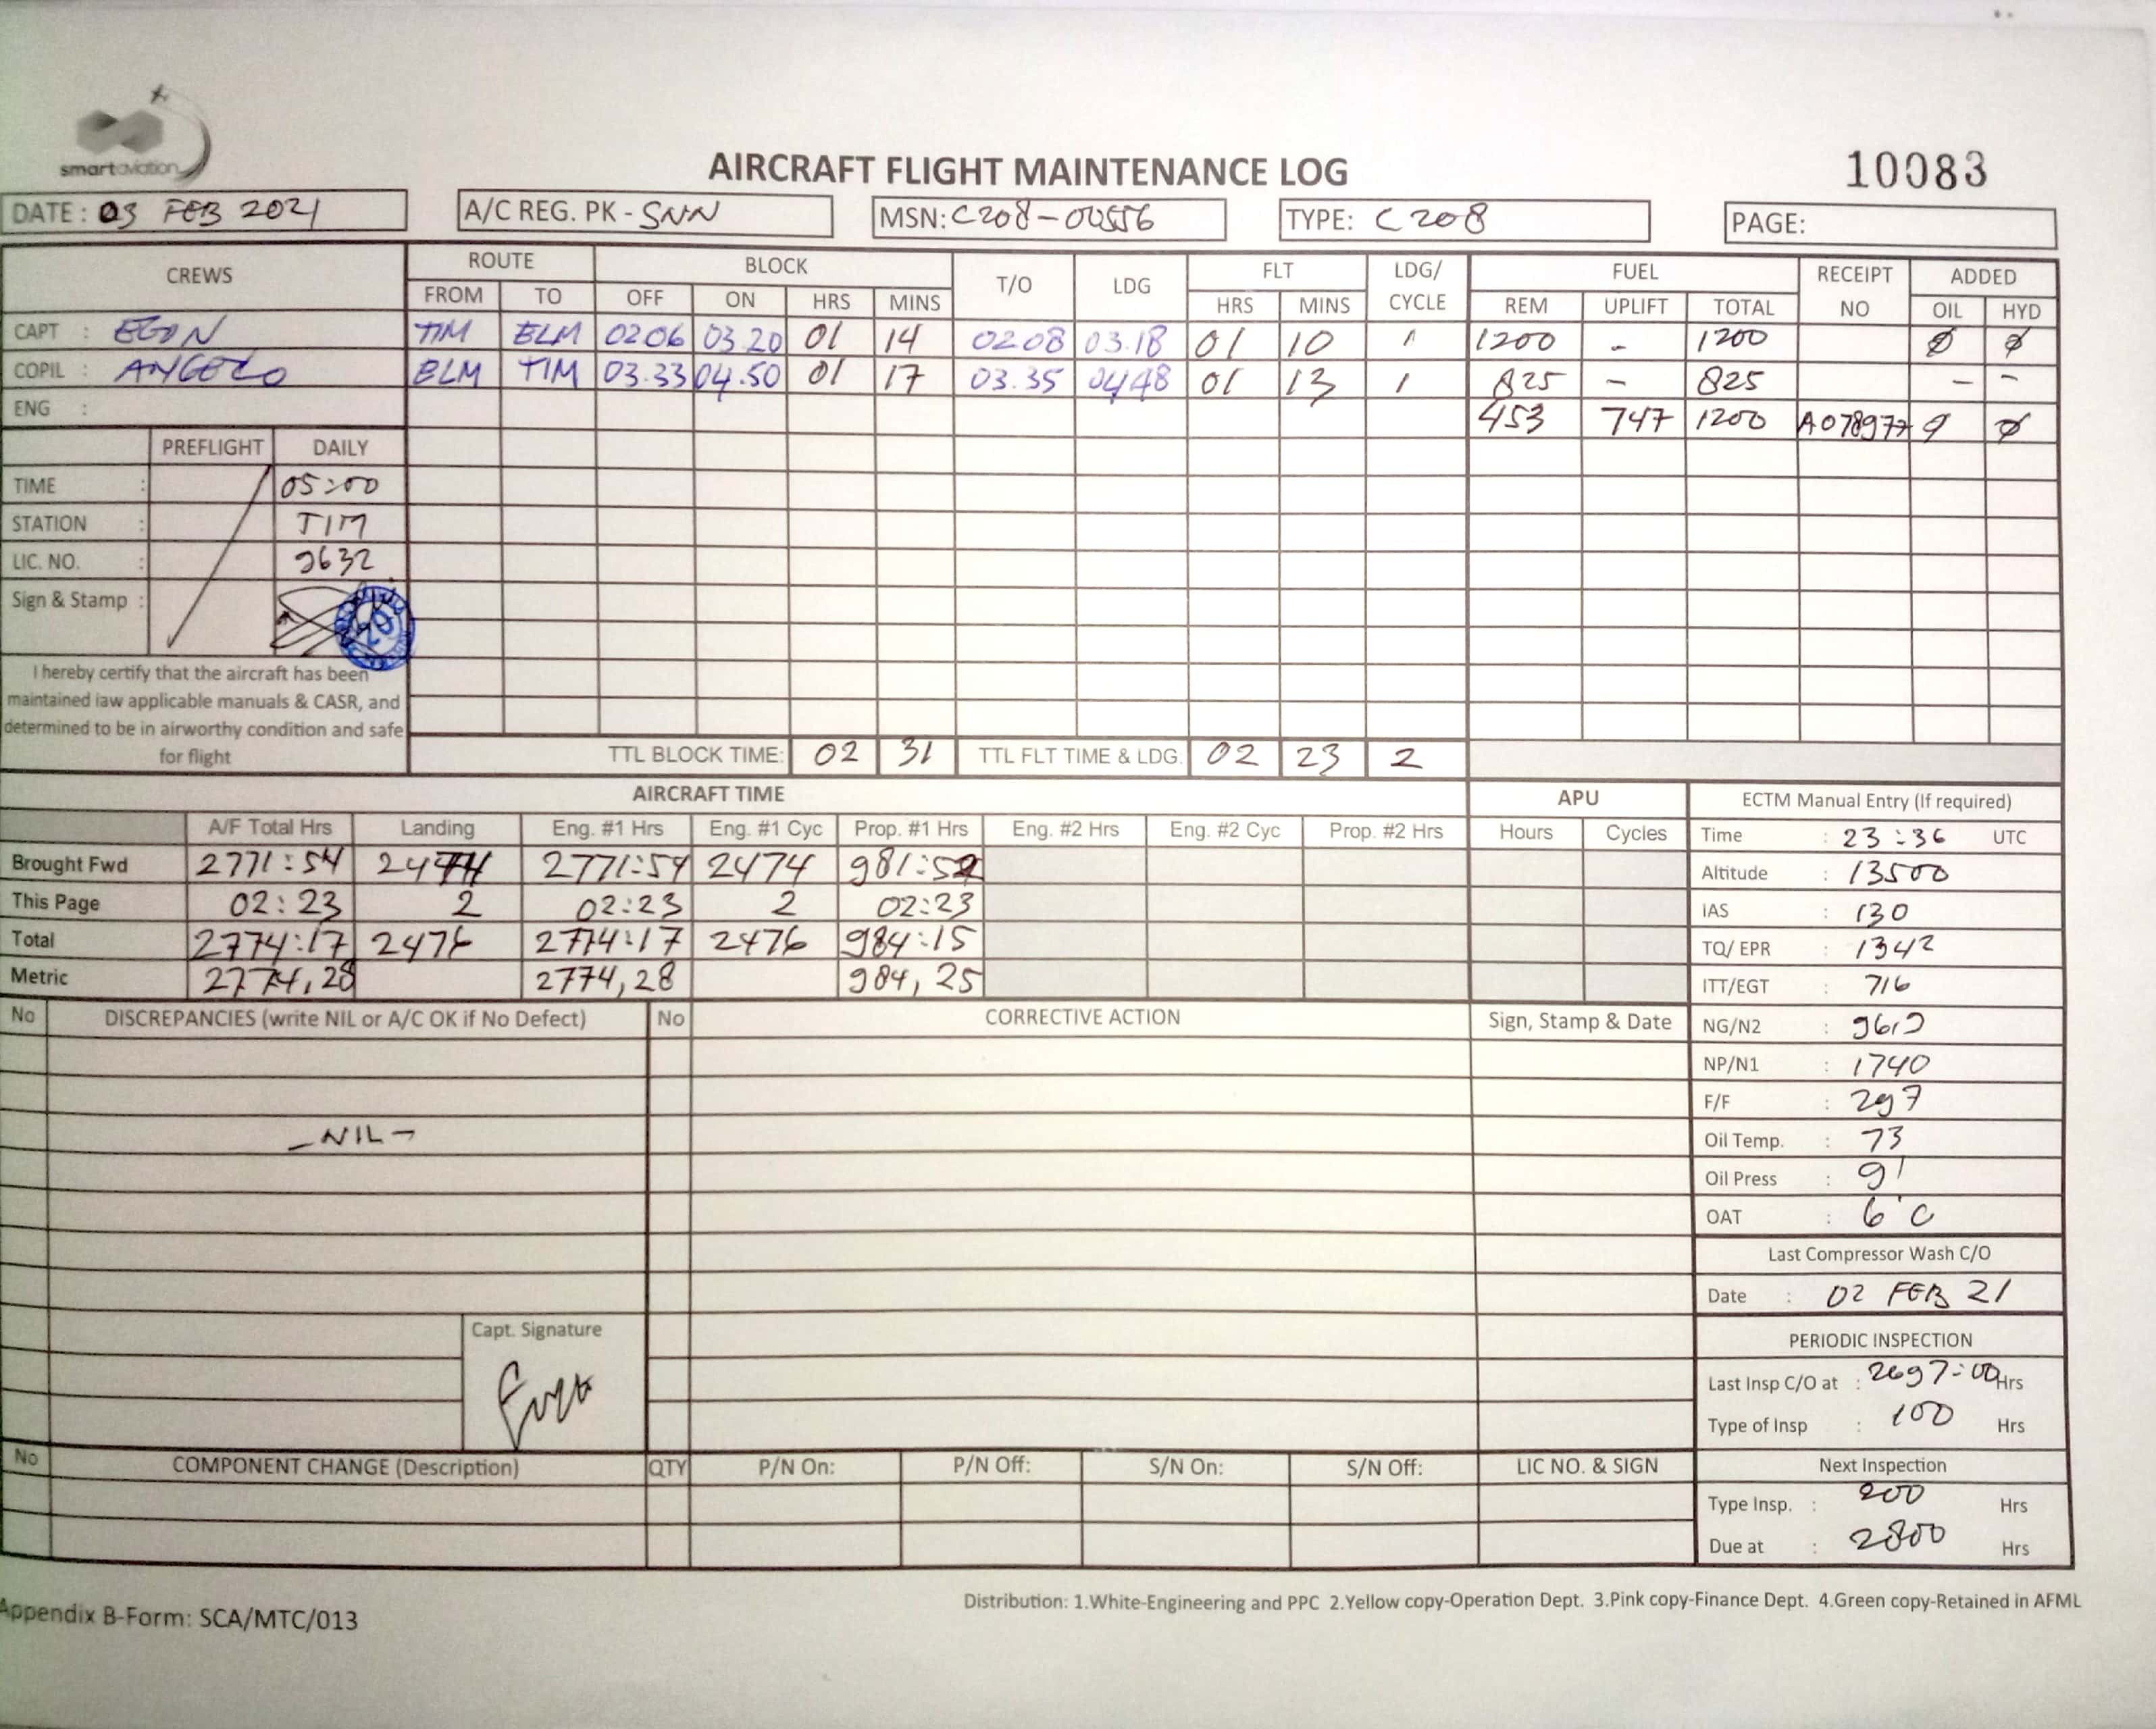 smartaviation
AIRCRAFT FLIGHT MAINTENANCE LOG
10083
DATE : 03 FEB 2021
A/C REG. PK - SNN
MSN: C208-00556
TYPE: C208
PAGE:
CREWS ROUTE BLOCK T/O LDG FLT LDG/ CYCLE FUEL RECEIPT NO ADDED
FROM TO OFF ON HRS MINS HRS MINS REM UPLIFT TOTAL OIL HYD
CAPT : EGON TIM ELM 02 06 03.20 01 14 02.08 03.18 01 10 1 1200 - 1200 Ø Ø
COPIL : ANGELO ELM TIM 03.33 04.50 01 17 03.35 04.48 01 13 1 825 - 825 - -
ENG : 453 747 1200 A078977 Ø
PREFLIGHT DAILY
TIME : 05:00
STATION : TIM
LIC. NO. : 9632
Sign & Stamp :
I hereby certify that the aircraft has been
maintained iaw applicable manuals & CASR, and
determined to be in airworthy condition and safe
for flight
TTL BLOCK TIME: 02 31 TTL FLT TIME & LDG. 02 23 2
AIRCRAFT TIME APU ECTM Manual Entry (If required)
A/F Total Hrs Landing Eng. #1 Hrs Eng. #1 Cyc Prop. #1 Hrs Eng. #2 Hrs Eng. #2 Cyc Prop. #2 Hrs Hours Cycles
Brought Fwd 2771:54 2474 2771:54 2474 981:52
This Page 02:23 2 02:23 2 02:23
Total 2774:17 2476 2774:17 2476 984:15
Metric 2774,28 2774,28 984,25
Time : 23:36 UTC
Altitude : 13500
IAS : 130
TQ/ EPR : 1342
ITT/EGT : 716
NG/N2 : 96,9
NP/N1 : 1740
F/F : 297
Oil Temp. : 73
Oil Press : 91
OAT : 6°C
Last Compressor Wash C/O
Date : 02 FEB 21
PERIODIC INSPECTION
Last Insp C/O at : 2697:00 Hrs
Type of Insp : 100 Hrs
Next Inspection
Type Insp. : 200 Hrs
Due at : 2800 Hrs
No DISCREPANCIES (write NIL or A/C OK if No Defect) No CORRECTIVE ACTION Sign, Stamp & Date
- NIL -
Capt. Signature
No COMPONENT CHANGE (Description) QTY P/N On: P/N Off: S/N On: S/N Off: LIC NO. & SIGN
Distribution: 1.White-Engineering and PPC 2.Yellow copy-Operation Dept. 3.Pink copy-Finance Dept. 4.Green copy-Retained in AFML
Appendix B-Form: SCA/MTC/013